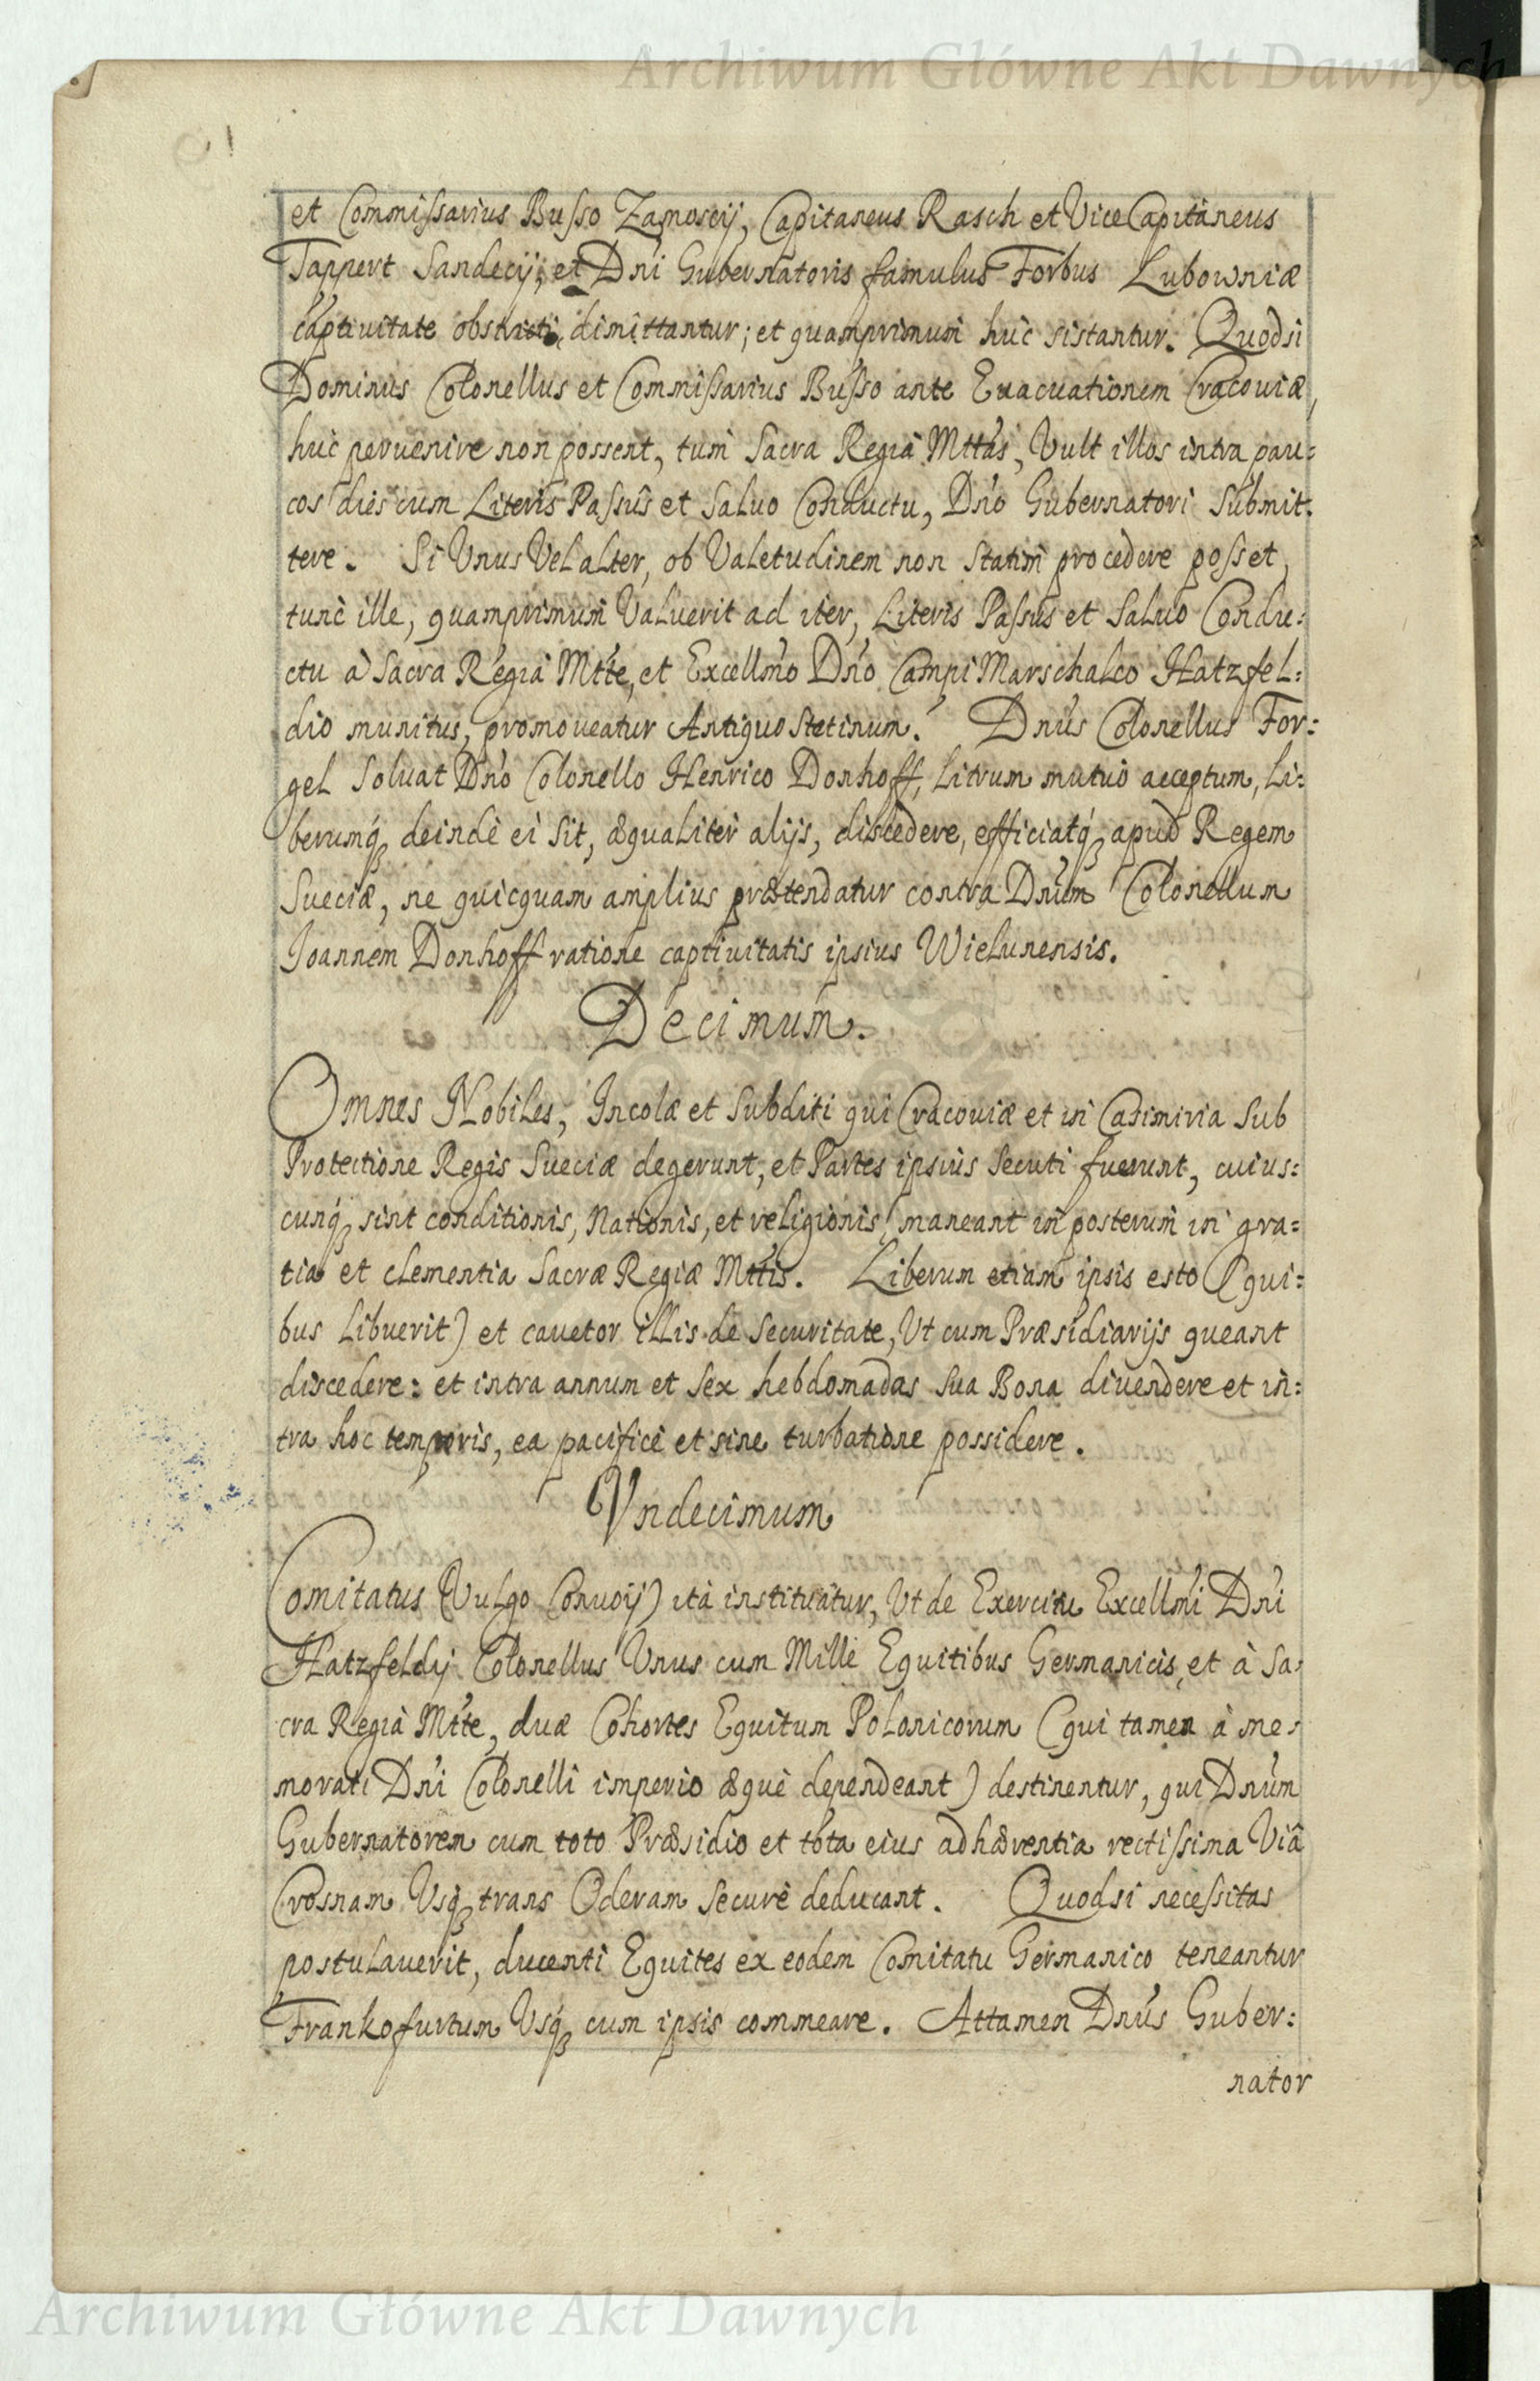 Archiwum Główne Akt Dawnych
et Commissarius Busso Zamoscij, Capitaneus Rasch et ViceCapitaneus
Tappert Sandecij, et Dni Gubernatoris famulus Forbus Lubowniæ
captiuitate obstricti, dimittantur; et quamprimum huc sistantur. Quodsi
Dominus Colonellus et Commissarius Busso ante Euacuationem Cracouiæ,
huc peruenire non possent, tum Sacra Regia Mttas, Vult illos intra pau:
cos dies cum Literis Passus et Saluo Conductu, Dno Gubernatori Submit:
tere. Si Vnus Vel alter, ob Valetudinem non statim procedere posset,
tunc ille, quamprimum Valuerit ad iter, Literis Passus et Saluo Condu:
ctu à Sacra Regia Mtte, et Excellmo Dno Campi Marschalco Hatzfel:
dio munitus, promoueatur Antiquo Stetinum. Dnus Colonellus For:
gel Soluat Dno Colonello Henrico Donhoff, Litrum mutuo acceptum, Li:
berumq; deindè ei sit, æqualiter alijs, discedere, efficiatq; apud Regem
Sueciæ, ne quicquam amplius prætendatur contra Dnum Colonellum
Joannem Donhoff ratione captiuitatis ipsius Wielunensis.
Decimum.
Omnes Nobiles, Incolæ et Subditi qui Cracouiæ et in Casimiria sub
Protectione Regis Sueciæ degerunt, et Partes ipsius Secuti fuerunt, cuius:
cunq; sint conditionis, Nationis, et religionis, maneant in posterum in gra=
tia et clementia Sacræ Regiæ Mttis. Liberum etiam ipsis esto (qui:
bus Libuerit) et cauetor illis de Securitate, Vt cum Præsidiarijs queant
discedere: et intra annum et Sex hebdomadas Sua Bona diuendere et in:
tra hoc temporis, ea pacificè et sine turbatione possidere.
Vndecimum
Comitatus (Vulgo Conuoij) ità instituatur, Vt de Exercitu Excellmi Dni
Hatzfeldij Colonellus Vnus cum Mille Equitibus Germanicis, et à Sa:
cra Regià Mtte, duæ Cohortes Equitum Polonicorum (qui tamen à me:
morati Dni Colonelli imperio æquè dependeant) destinentur, qui Dnum
Gubernatorem cum toto Præsidio et tota eius adhærentia rectissima Viâ
Crosnam Vsq; trans Oderam Securè deducant. Quodsi necessitas
postulauerit, ducenti Equites ex eodem Comitatu Germanico teneantur
Frankofurtum Vsq; cum ipsis commeare. Attamen Dnus Guber:
nator
Archiwum Główne Akt Dawnych